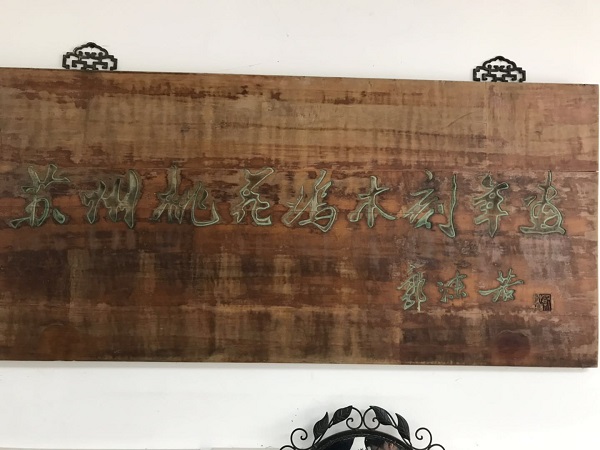 苏州桃花坞木刻年画
郭沫若